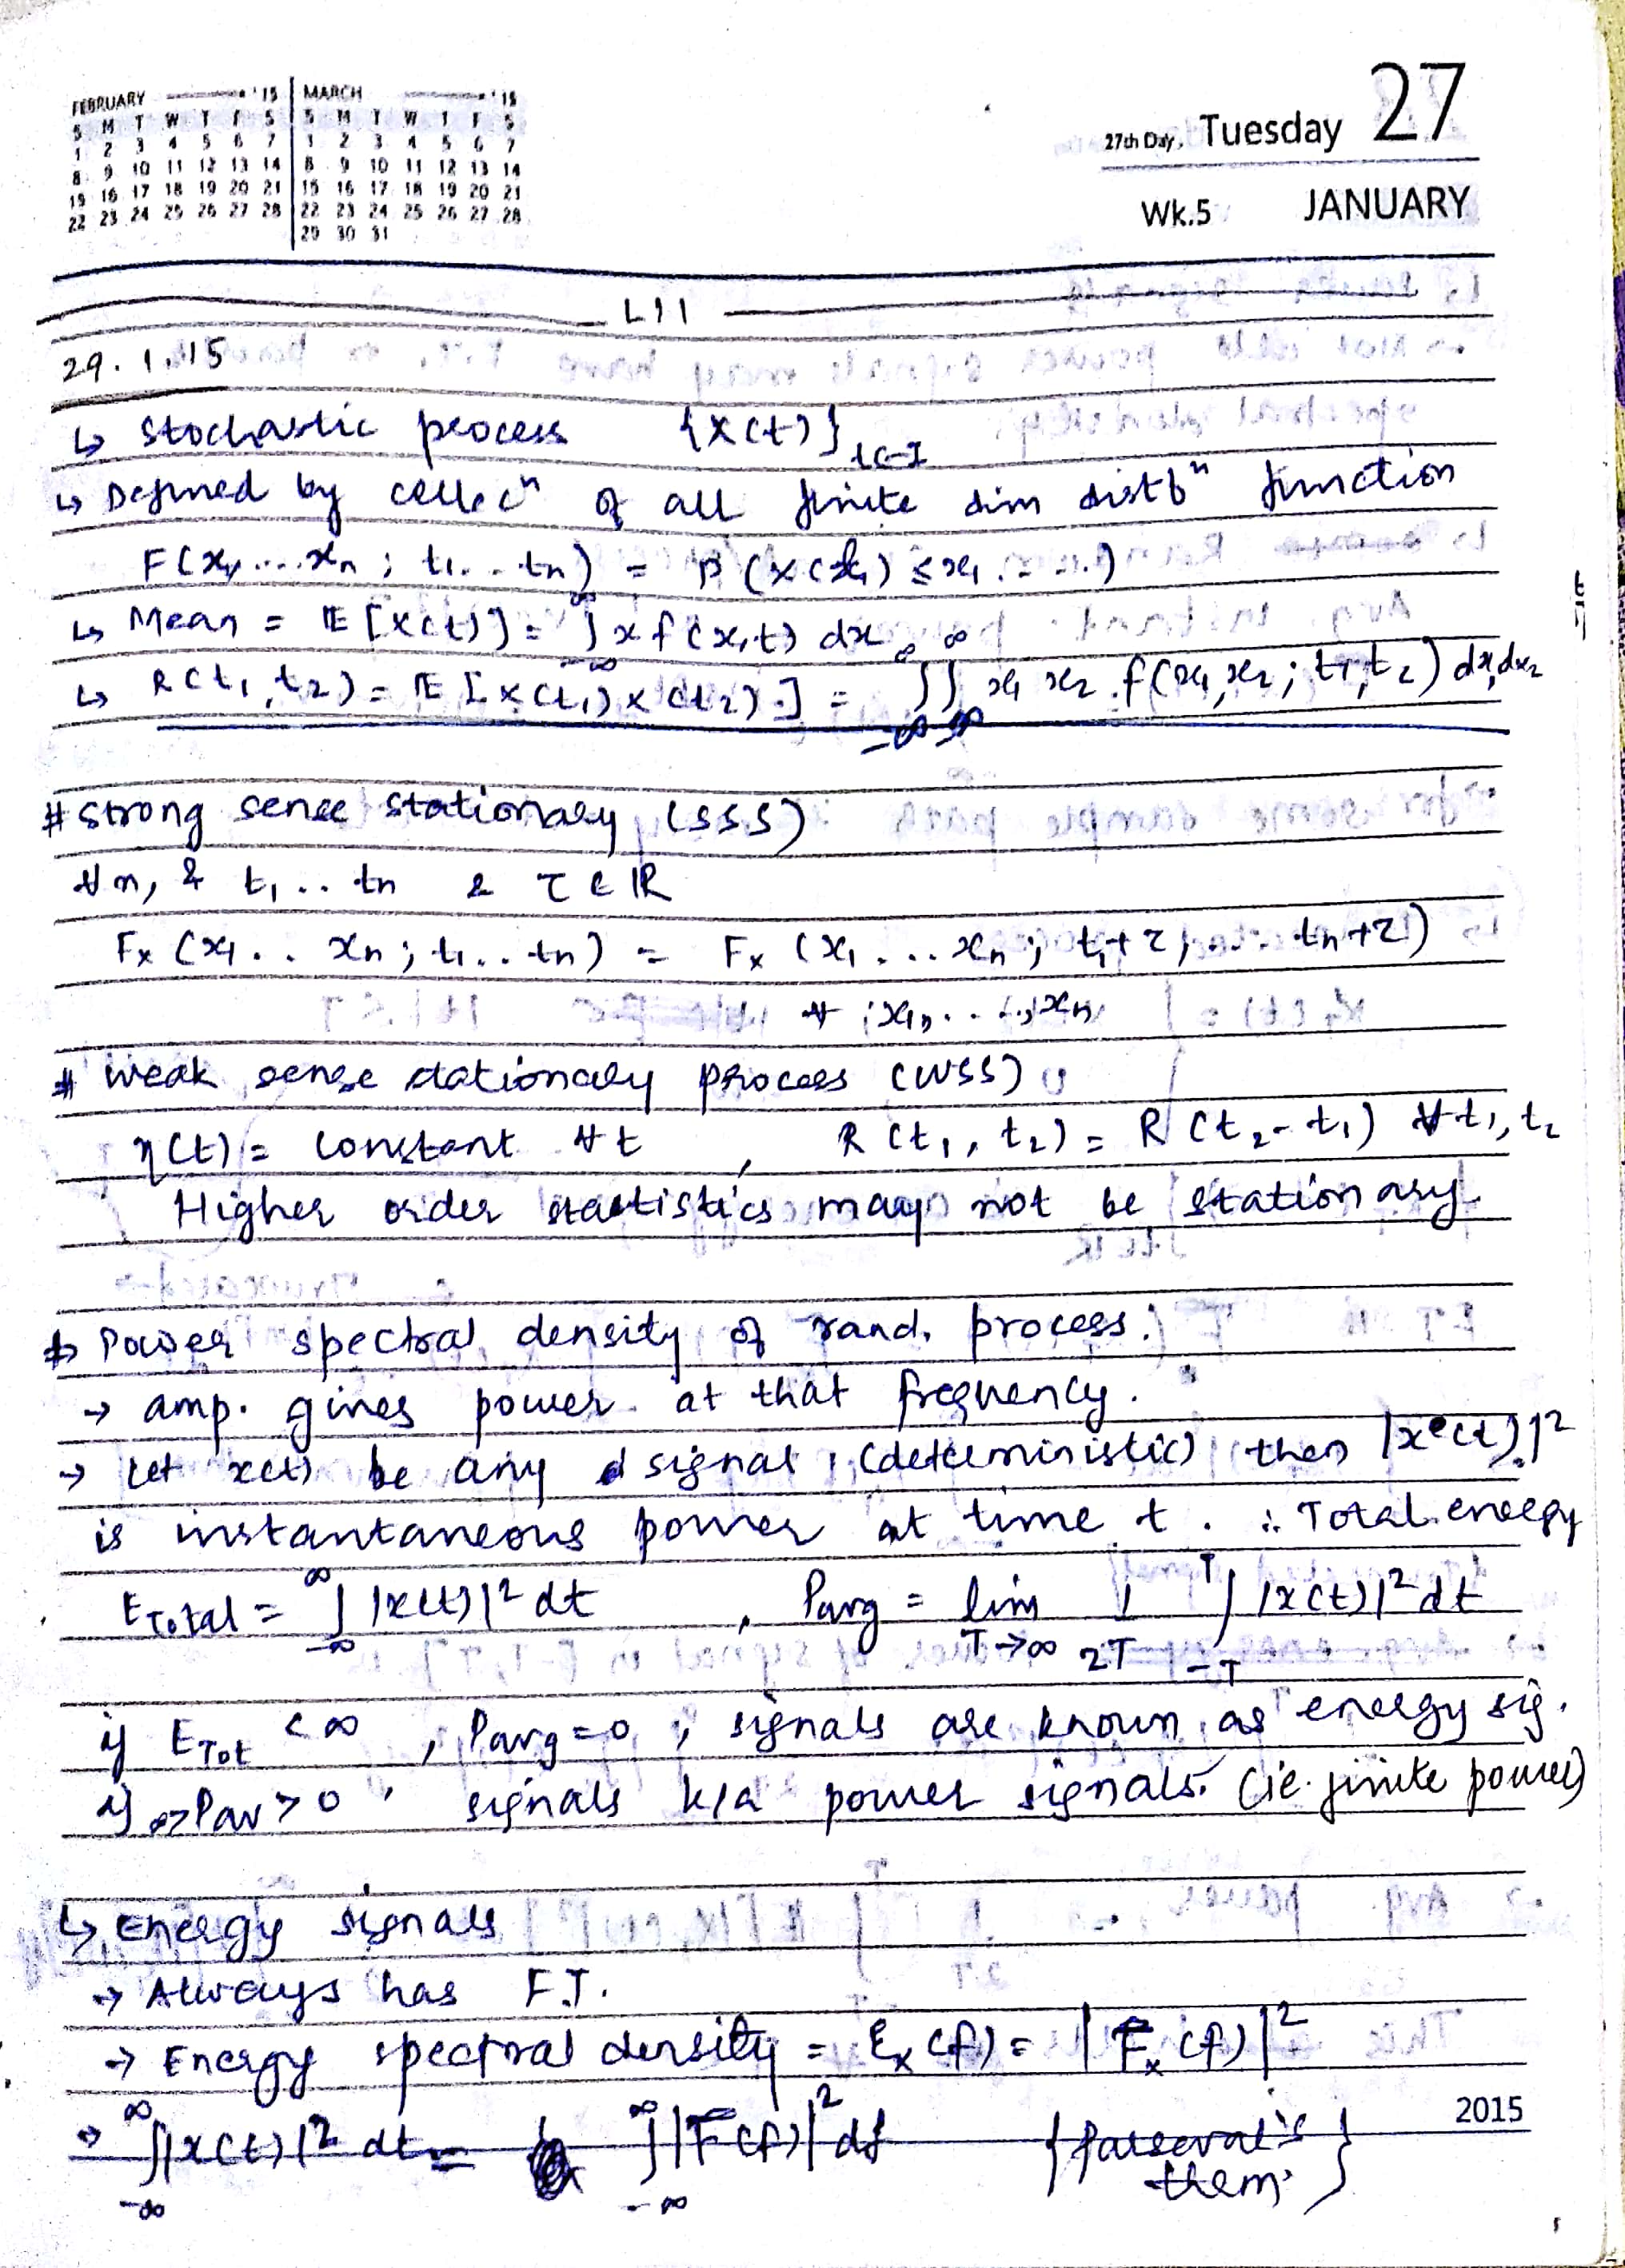 FEBRUARY '15 MARCH '15
S M T W T F S S M T W T F S
1 2 3 4 5 6 7 1 2 3 4 5 6 7
8 9 10 11 12 13 14 8 9 10 11 12 13 14
15 16 17 18 19 20 21 15 16 17 18 19 20 21
22 23 24 25 26 27 28 22 23 24 25 26 27 28
29 30 31
27th Day, Tuesday 27
Wk.5 JANUARY
L11
29.1.15
↳ Stochastic process {X(t)}t∈I
↳ Defined by collecⁿ of all finite dim distbⁿ function
F(x₁, ... xₙ ; t₁...tₙ) = P(X(t₁) ≤ x₁ ....)
↳ Mean = E[X(t)] = ∫_{-∞}^{∞} x f(x,t) dx
↳ R(t₁, t₂) = E[X(t₁) X(t₂)] = ∫_{-∞}^{∞}∫_{-∞}^{∞} x₁ x₂ f(x₁,x₂; t₁,t₂) dx₁dx₂
# Strong sense stationary (SSS)
∀ n, & t₁ .. tn & τ ∈ ℝ
Fx (x₁ .. xn ; t₁ .. tn) = Fx (x₁ ... xn ; t₁+τ, ... tn+τ)
∀ x₁, ...., xn
# Weak sense stationary process (WSS)
η(t) = constant ∀ t , R(t₁, t₂) = R(t₂-t₁) ∀ t₁, t₂
Higher order staatistics may not be stationary
↳ Power spectral density of rand. process.
→ amp. gives power at that frequency.
→ Let x(t) be any signal (deterministic) then |x(t)|²
is instantaneous power at time t. ∴ Total energy
E_Total = ∫_{-∞}^{∞} |x(t)|² dt , Pavg = lim_{T→∞} 1/2T ∫_{-T}^{T} |x(t)|² dt
if E_Tot < ∞ , Pavg = 0 , signals are known as energy sig.
if ∞ > Pav > 0 , signals k/a power signals. (ie. finite power)
↳ Energy signals
→ Always has F.T.
→ Energy spectral density = Ex(f) = |Fx(f)|²
→ ∫_{-∞}^{∞} |x(t)|² dt = ∫_{-∞}^{∞} |F(f)|² df {Parseval's
them.}
2015